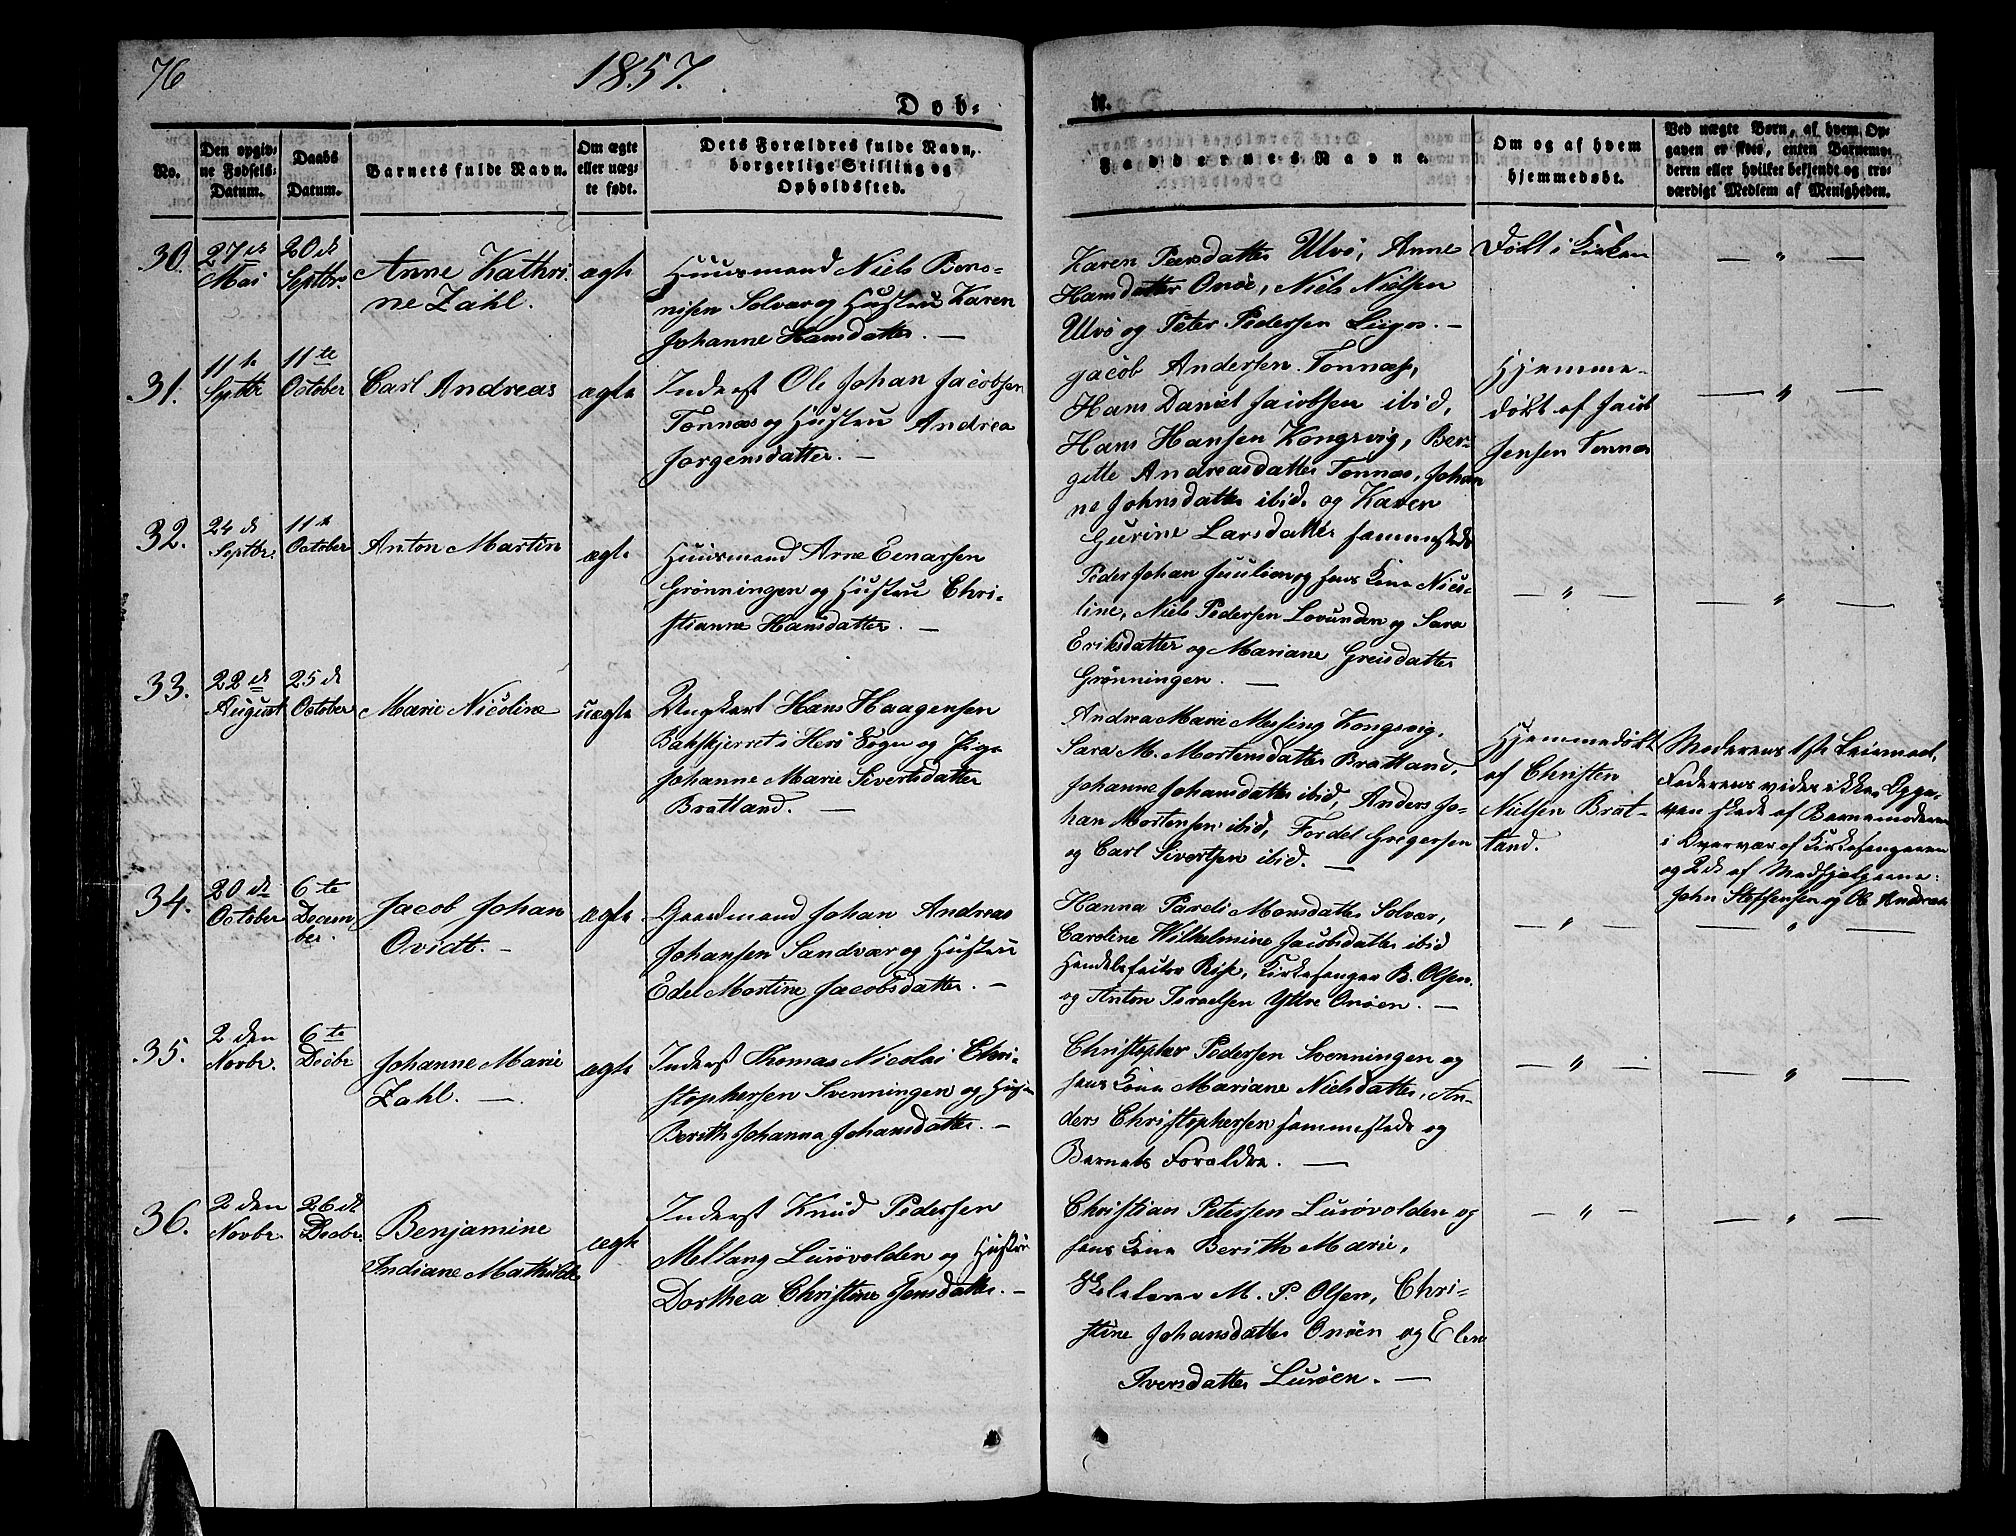 76
1857.
Døb-
te.
No.
Den opgiv-
ne Fødsels-
Datum.
Daabs
Datum.
Barnets fulde Navn.
Om ægte
eller uæg-
te født.
Dets Forældres fulde Navn,
borgerlige Stilling og
Opholdssted.
Faddernes Navne.
Om og af hvem
hjemmedøbt.
Ved uægte Børn, af hvem Op-
gaven er skeet, enten Barnemo-
deren eller hvilket bekjendt og tro-
værdigt Medlem af Menigheden.
30.
27de
Mai
20de
Septbr.
Anne Kathri
ne Zahl.
ægte
Huusmand Niels Bens-
nisen Solvær og Hustru Karen
Johanne Hansdatter. —
Karen Pedersdatter Ulvö, Anne
Hansdatter Onöe, Niels Nielsen
Ulvö og Peter Pedersen
Döbt i Kirken
— " —
31.
11te
Septbr
11te
October
Carl Andreas
ægte
Inderst Ole Johan Jacobsen
Tonnæs og Hustru Andrea
Jörgensdatter. —
Jacob Andersen Tonnæs,
Hans Daniel Jacobsen ibid,
Hans Hansen Kongsvig, Ber-
gitte Andreasdatter Tonnæs, Johan
ne Johnsdatter ibid. og Karen
Gurine Larsdatter sammesteds
Hjemme-
döbt af Jacob
Jensen Tonnæs
— " —
32.
24de
Septbr.
11te
October
Anton Martin
ægte
Huusmand Arne Enarsen
Grønningen og Hustru Chri-
stianne Hansdatter. —
Peder Johan Juul og hans Kone Nico-
line, Niels Pedersen Lovunden og Sara
Eriksdatter og Mariane Greisdatter
Grønningen. —
— " —
— " —
33.
22de
August
25de
October
Marie Nicoline
uægte
Ungkarl Hans Haagensen
Bakskjerret i Herö Sogn og Pige
Johanne Marie Sivertsdatter
Bratland. —
Andrea Marie Messing Kongsvig,
Sara M. Mortensdatter Bratland,
Johanne Johansdatter ibid, Anders Jo-
han Mortensen ibid, Fordel Gregersen
og Carl Sivertsen ibid. —
Hjemmedöbt
af Christen
Nielsen Brat-
land.
Moderens 1ste Leiermaal,
Faderens vides ikke. Opga-
ven skede af Barnemoderen
i Overvær af Kirkesangeren
og 2de af Medhjælperne:
John Steffensen og Ole Andreas
34.
20de
October
6te
Decem
ber.
Jacob Johan
Ovidt. —
ægte
Gaardmand Johan Andreas
Johansen Sandvær og Hustru
Edel Martine Jacobsdatter. —
Hanna Pareli Monsdatter Solvær,
Caroline Wilhelmine Jacobsdatter ibid
Handelsfactor Riis, Kirkesanger B. Olsen
og Anton Israelsen Yttre Onöen. —
— " —
— " —
35.
2den
Novbr.
6te
Decbr
Johanne Marie
Zahl. —
ægte
Inderst Thomas Nicolai Chri-
stophersen Svenningen og Hust
Berith Johanna Johansdatter. —
Christopher Pedersen Svenningen og
hans Kone Mariane Nielsdatter, An-
ders Christophersen sammesteds og
Barnets Forældre. —
— " —
— " —
36.
2den
Novbr.
26de
Decbr.
Benjamine
Indiane Mathilde
ægte
Inderst Knud Pedersen
Mellang Lurövolden og Hustru
Dorthea Christine Jensdatter. —
Christian Petersen Lurövolden og
hans Kone Berith Marie,
Skolelærer M. P. Olsen, Chri-
stine Johansdatter Onöen og Elen
Iversdatter Luröen. —
— " —
— " —